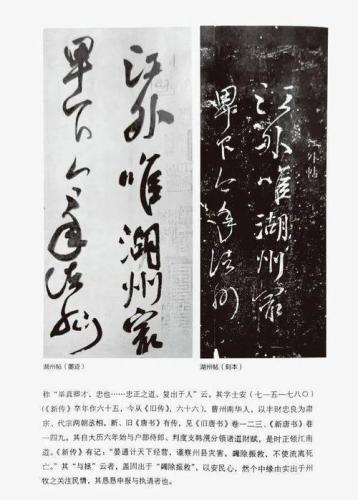 江外唯湖州最
卑下今年诸州
江外帖
江外唯湖州最
卑下今年诸州
湖州帖（墨迹）
湖州帖（刻本）
忠也……忠正之道，复出于人”云。其字士安（七一五—七八〇）
（《新传》卒年作六十五，今从《旧传》，六十六），曹州南华人，以丰财忠良为肃
宗、代宗两朝丞相，新、旧《唐书》有传，见《旧唐书》卷一二三、《新唐书》卷
一四九。其自大历六年始与户部侍郎、判度支韩滉分领诸道财赋，是时正领江南
道。《新传》有记：“晏通计天下经营，谨察州县灾害，蠲除振救，不使流离死
亡。”其“与拯”云者，盖因出于“蠲除振救”，以安民心，然个中缘由实出于州
牧之关注民情，其恳恳申报与执请者也。